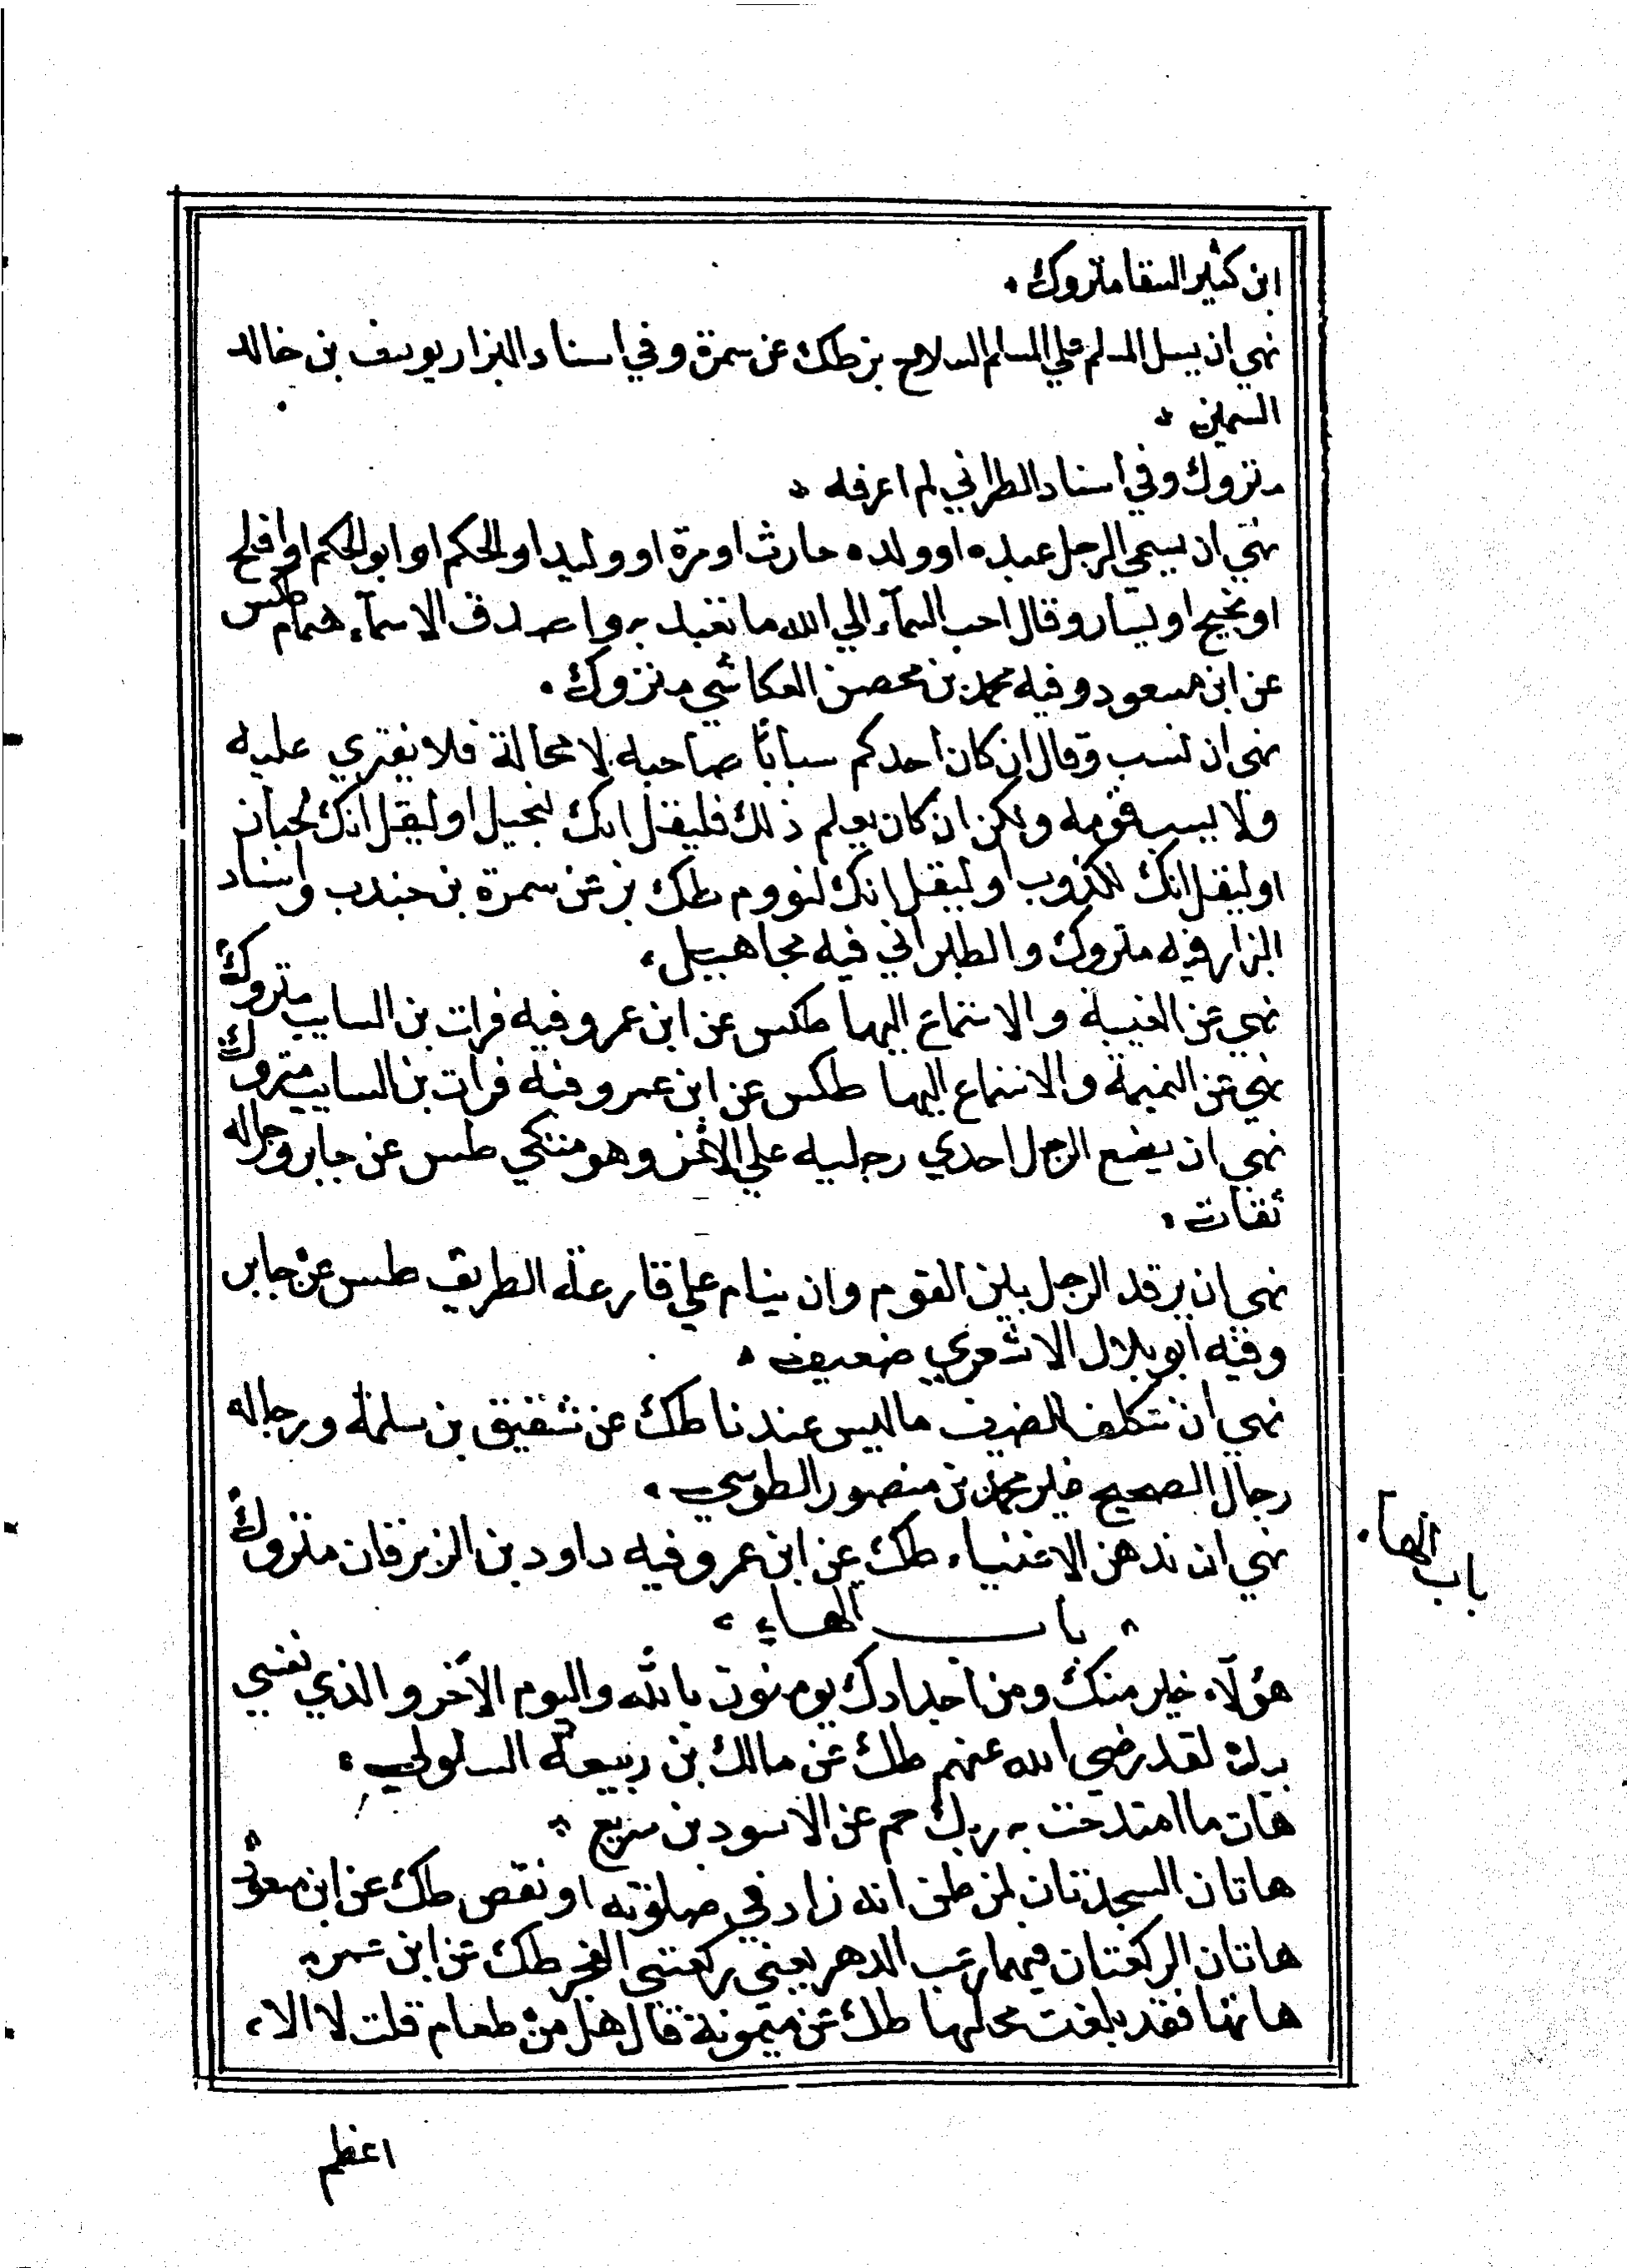 ابن كثير السقا متروك
نهي ان يسل المسلم علي المسلم السلاح بز طك عن سمرة وفي اسناد البزار يوسف بن خالد
السمين
متروك وفي اسناد الطبراني لم اعرفه
نهي ان يسمي الرجل عبده او ولده حارث او مرة او وليد او الحكم او ابو الحكم او افلح
او نجيح او يسار وقال احب السمآء الي الله ما تعبد به واصدق الاسمآء همام طكس
عن ابن مسعود وفيه محمد بن محصن العكاشي متروك
نهي ان نسب وقال ان كان احدكم سبابًا صاحبه لا محالة فلا يفتري عليه
ولا يسب قومه ولكن ان كان يعلم ذلك فليقل انك لبخيل او ليقل انك لجبان
او ليقل انك لكذوب او ليقل انك لنووم طك بز عن سمرة بن جندب واسناد
البزار فيه متروك والطبراني فيه مجاهيل
نهي عن الغيبة والاستماع اليها طكس عن ابن عمر وفيه فرات بن السايب متروك
نهي عن النميمة والاستماع اليها طكس عن ابن عمر وفيه فرات بن السايب متروك
نهي ان يضع الرجل احدي رجليه علي الاخر وهو متكي طس عن جابر ورجاله
ثقات
نهي ان يرقد الرجل بين القوم وان ينام علي قارعة الطريق طس عن جابر
وفيه ابو بلال الاشعري ضعيف
نهي ان نتكلف للضيف ما ليس عندنا طك عن شقيق بن سلمة ورجاله
رجال الصحيح غير محمد بن منصور الطوسي
نهي ان ندهن الاغنياء طك عن ابن عمر وفيه داود بن الزبرقان متروك
باب الهاء
باب الهاء
هؤلآء خير منك ومن اجدادك يومنون بالله واليوم الآخر والذي نفسي
بيده لقد رضي الله عنهم طك عن مالك بن ربيعة السلولي
هات ما امتدحت به ربك حم عن الاسود بن سريع
هاتان السجدتان لمن ظن انه زاد في صلوته او نقص طك عن ابن مسعود
هاتان الركعتان فيهما رغب الدهر يعني ركعتي الفجر طك عن ابن عمر
هاتها فقد بلغت محلها طك عن ميمونة قال هل من طعام قلت لا الا
اعظم